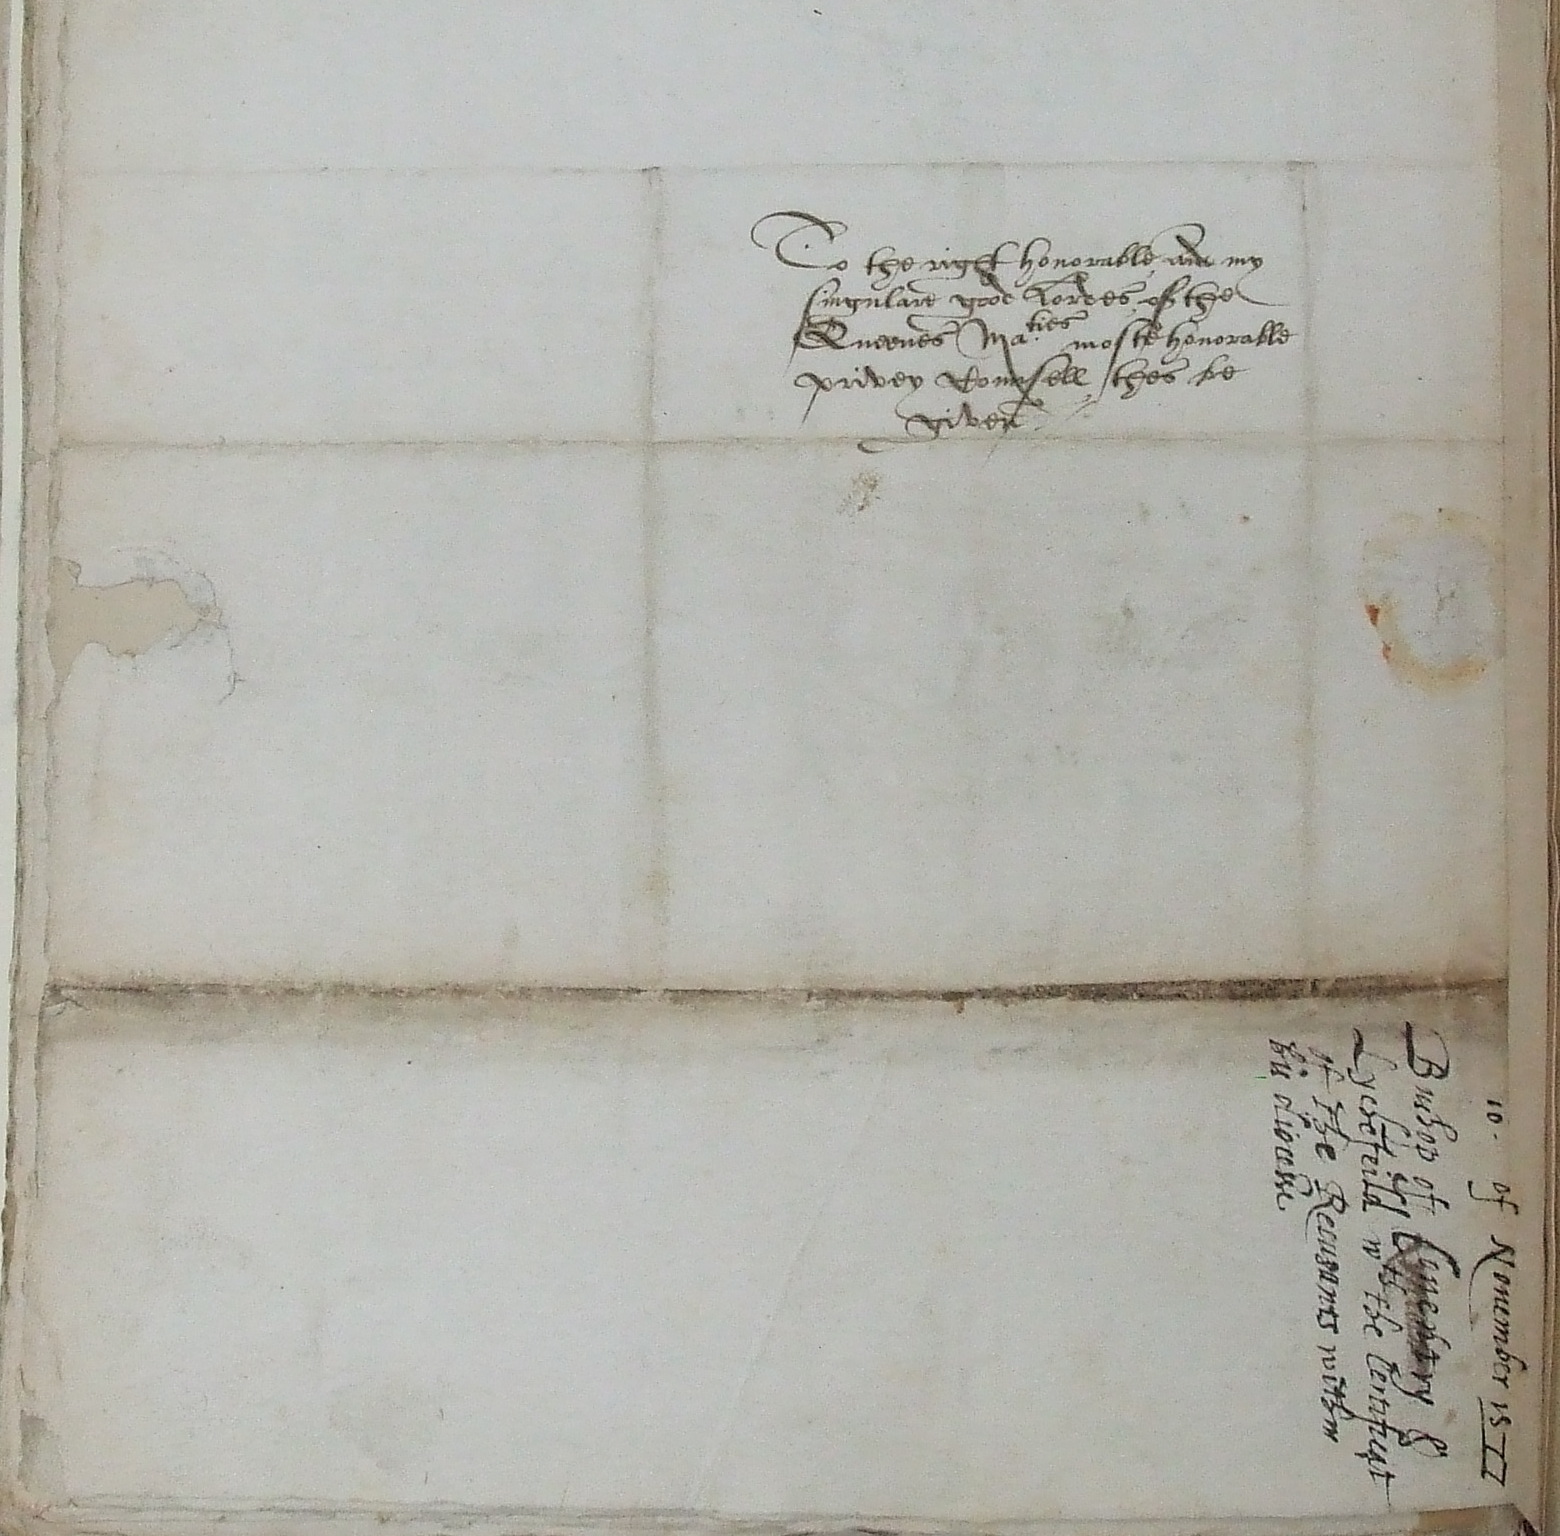 To the right honorable and my
singulare good Lordes of the
Queenes Ma.ties moste honorable
privey Counsell thes be
given
10. of Nouember 1577
Bushop of Couentry &
Lychefeild wth the Certificat
of the Recusants within
his diocesse